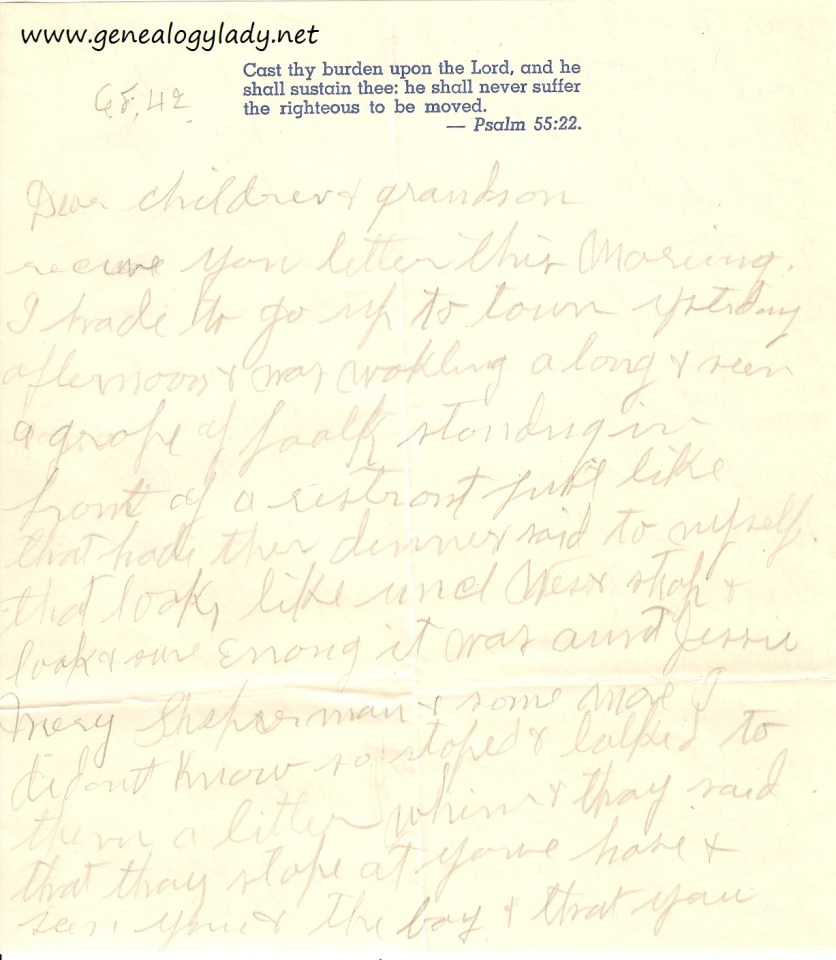 www.genealogylady.net
Cast thy burden upon the Lord, and he
shall sustain thee: he shall never suffer
the righteous to be moved.
— Psalm 55:22.
42
Dear children & grandson
recieve you letter this Morning.
I hade to go up to town ysterday
afternoon & was wakling along & seen
a groope of foalk standing in
front of a restront just like
that hade ther dinner said to myself.
that looks like uncl Wes & stop &
look & sure Enong it was aunt Jessie
Mery & some more I
didont know so stoped & talked to
them a litter whim & thay said
that thay stope at youre hose &
seen you & the boy & that you